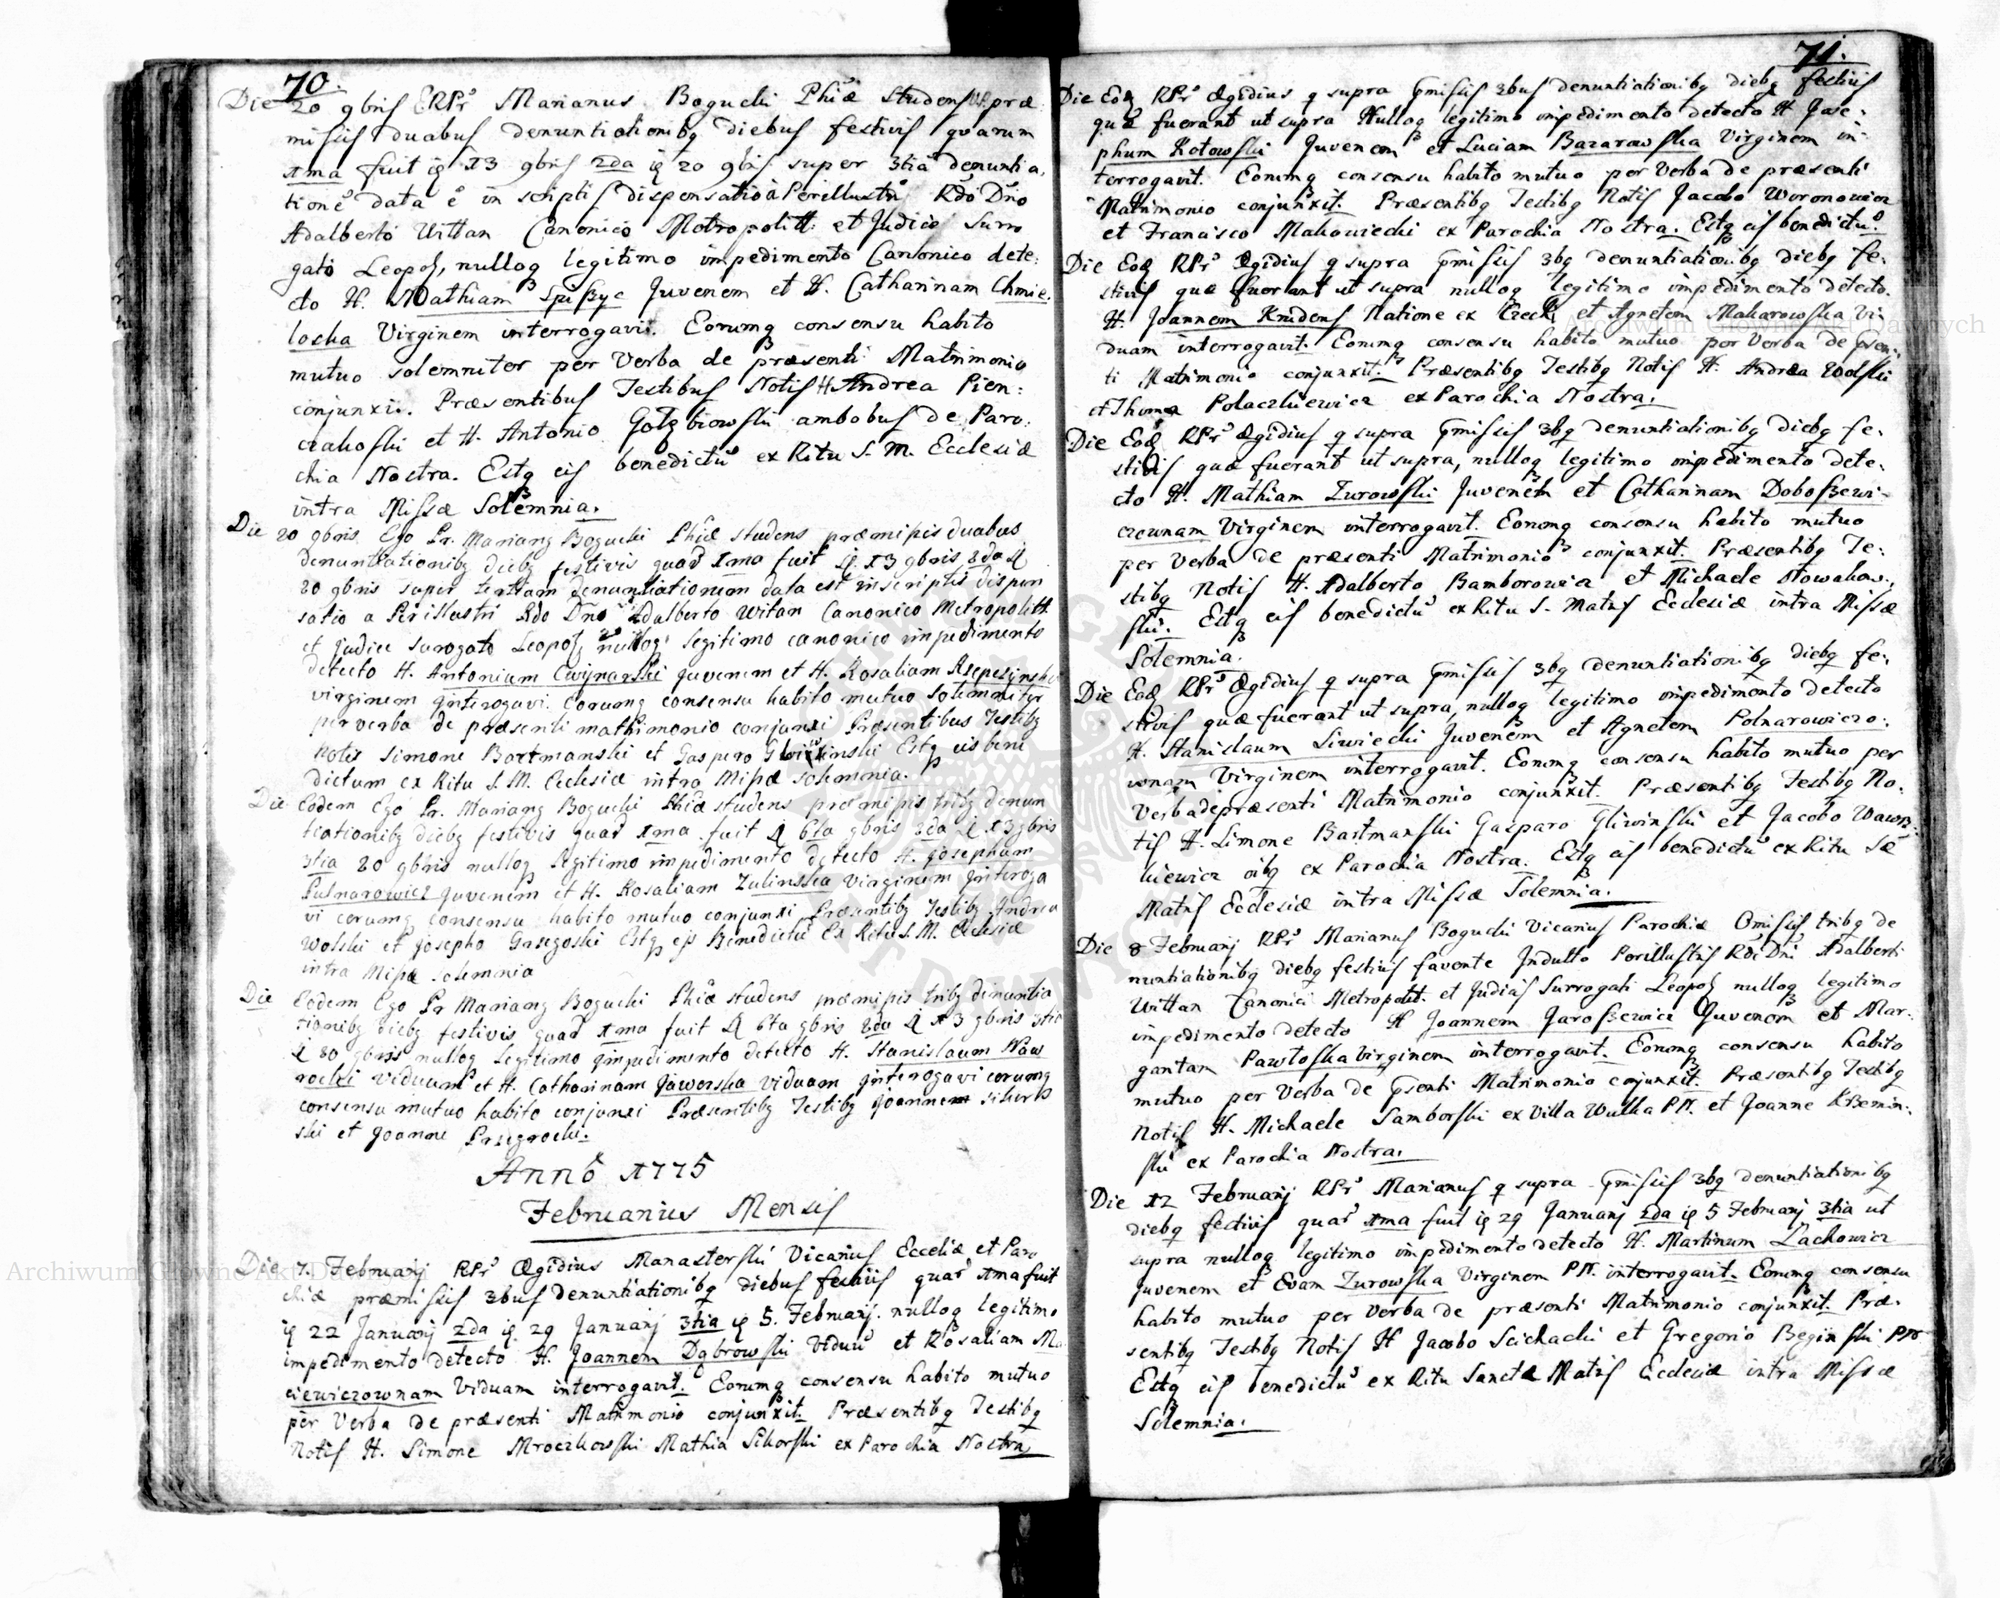 70.
Die 20 9bris RPr Marianus Bogucki Phiæ Studens præ
missis duabus denuntiationibq diebus festivis quarum
1ma fuit 13 9bris 2da 20 9bris super 3tia denuntia,
tione data e in scriptis dispensatio a Perillustri Rdo Dno
Adalberto Wittan Canonico Metropolitt: et Judice Surro
gato Leopol, nulloq legitimo impedimento Canonico dete:
cto H. Mathiam Juvenem et H. Catharinam Chmie.
locka Virginem interrogavit. Eorumq consensu habito
mutuo solemniter per Verba de præsenti Matrimonio
conjunxit. Præsentibus Testibus Notis H. Andrea Pien:
czakoski et H. Antonio Gołębiowski ambobus de Paro:
chia Nostra. Estq eis benedictu ex Ritu S. M. Ecclesiæ
intra Missæ Solemnia.
Die 20 9bris Ego Pr. Marianq Bogucki Phiæ studens præmissis duabus
denuntiationibq diebq festivis quar 1ma fuit 13 9bris 2da
20 9bris super tertiam denuntiationem data est in scriptis dispen
satio a Perillustri Rdo Dno Adalberto Witan Canonico Metropolitt
et Judice surogato Leopol nulloq legitimo canonico impedimento
detecto H. Antonium Cwynarski juvenem et H. Rosaliam Rzepezinska
virginem interogavi. Eorumq consensu habito mutuo solemniter
per verba de præsenti mathimonio conjunxi Præsentibus Testibq
Notis Simone Bartmanski et Gaspero Gliwinski Estq eis bene
dictum ex Ritu S. M. Eclesiæ intra Missæ solemnia.
Die Eodem Ego Pr. Marianq Bogucki Phiæ studens præmissis tribq denun
tiationibq diebq festivis quar 1ma fuit 6ta 9bris 2da 13 9bris
3tia 20 9bris nulloq legitimo impedimento detecto H. Josephum
Pulnarowicz juvenem et H. Rosaliam Zulinska virginem interoga
vi eorumq consensu habito mutuo conjunxi Præsentibq Testibq Andrea
Wolski et Josepho Grzegoski Estq eis Benedictu Ex Ritu S. M. Eclesiæ
intra Missæ solemnia
Die Eodem Ego Pr Marianq Bogucki Phiæ studens præmissis tribq denuntia
tionibq diebq festivis quar 1ma fuit 6ta 9bris 2da 13 9bris 3tia
20 9bris nulloq legitimo impedimento detecto H. Stanislaum Naw
rocki viduum et H. Catharinam Jaworska viduam interogavi eorumq
consensu mutuo habito conjunxi Præsentibq Testibq Joannem Sikors
ski et Joanne Przegrocki.
Anno 1775
Februarius Mensis
Die 7. Februarij RPr Ægidius Manasterski Vicarius Eccliæ et Paro
chiæ præmissis 3bus denuntiationibq diebus festivis quar 1ma fuit
22 Januarij 2da 29 Januarij 3tia 5. Februarij. nulloq legitimo
impedimento detecto H. Joannem Dąbrowski Viduu et Rosaliam Ma
ciewiczownam Viduam interrogavit. Eorumq consensu habito mutuo
per Verba de præsenti Matrimonio conjunxit. Præsentibq Testibq
Notis H. Simone Mroczkowski Mathia Sikorski ex Parochia Nostra
71.
Die Eod RPr Ægidius q supra Pmissis 3bus denuntiationibq diebq festivis
quæ fuerant ut supra Nulloq legitimo impedimento detecto H Jose:
phum Kotowski Juvenem et Luciam Bazarowska Virginem in:
terrogavit. Eorumq consensu habito mutuo per Verba de præsenti
Matrimonio conjunxit. Præsentibq Testibq Notis Jacobo Woronowicz
et Francisco Makowiecki ex Parochia Nostra. Estq eis benedictu.
Die Eod RPr Ægidius q supra Pmissis 3bq denuntiationibq diebq fe:
stivis quæ fuerant ut supra nulloq legitimo impedimento detecto.
H. Joannem Krudens Natione ex Czech et Agnetem Makarowska Vi
duam interrogavit. Eorumq consensu habito mutuo per Verba de Psen:
ti Matrimonio conjunxit. Præsentibq Testibq Notis H. Andræa Wolski
et Thoma Polaczkiewicz ex Parochia Nostra.
Die Eod RPr Ægidius q supra Pmissis 3bq denuntiationibq diebq fe:
stivis quæ fuerant ut supra, nulloq legitimo impedimento dete:
cto H. Mathiam Zurowski Juvenem et Catharinam Doboszewi:
czownam Virginem interrogavit. Eorumq consensu habito mutuo
per Verba de præsenti Matrimonio conjunxit. Præsentibq Te:
stibq Notis H. Adalberto Bamborowicz et Michaele Nowakow:
ski. Estq eis benedictu ex Ritu S. Matris Ecclesiæ intra Missæ
Solemnia.
Die Eod RPr Ægidius q supra Pmissis 3bq denuntiationibq diebq fe:
stivis quæ fuerant ut supra, nulloq legitimo impedimento detecto
H. Stanislaum Siwiecki Juvenem et Agnetem Polnarowiczo:
wonam Virginem interrogavit. Eorumq consensu habito mutuo per
Verba de præsenti Matrimonio conjunxit. Præsentibq Testibq No:
tis H. Simone Bartmanski Gasparo Gliwinski et Jacobo Wawrz:
kiewicz oibq ex Parochia Nostra. Estq eis benedictu ex Ritu Sæ
Matris Ecclesiæ intra Missæ Solemnia.
Die 8 Februarij RPr Marianus Bogucki Vicarius Parochiæ Pmissis tribq de
nuntiationibq diebq festivis favente Indulto Perillustris Rdi Dni Adalberti
Wittan Canonici Metropolit. et Judicis Surrogati Leopol nulloq legitimo
impedimento detecto H Joannem Jaroszewicz Juvenem et Mar:
garitam Pawłoska Virginem interrogavit. Eorumq consensu habito
mutuo per Verba de Psenti Matrimonio conjunxit. Præsentibq Testibq
Notis H. Michaele Samborski ex Villa Wulka PN. et Joanne Krzemin:
ski ex Parochia Nostra.
Die 12 Februarij RPr Marianus q supra Pmissis 3bq denuntiationibq
diebq festivis quar 1ma fuit 29 Januarij 2da 5 Februarij 3tia ut
supra nulloq legitimo impedimento detecto H. Martinum Zachowicz
Juvenem et Evam Zurowska Virginem PN. interrogavit. Eorumq consensu
habito mutuo per Verba de præsenti Matrimonio conjunxit. Præ:
sentibq Testibq Notis H Jacobo Scichacki et Gregorio Beginski PN
Estq eis benedictu ex Ritu Sanctæ Matris Ecclesiæ intra Missæ
Solemnia.